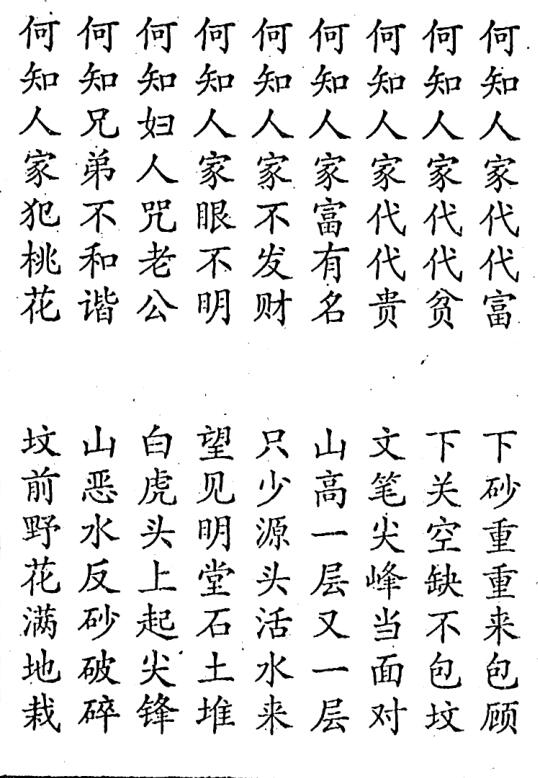 何知人家代代富
下砂重重来包顾
何知人家代代贫
下关空缺不包坟
何知人家代代贵
文笔尖峰当面对
何知人家富有名
山高一层又一层
何知人家不发财
只少源头活水来
何知人家眼不明
望见明堂石土堆
何知妇人咒老公
白虎头上起尖锋
何知兄弟不和谐
山恶水反砂破碎
何知人家犯桃花
坟前野花满地栽